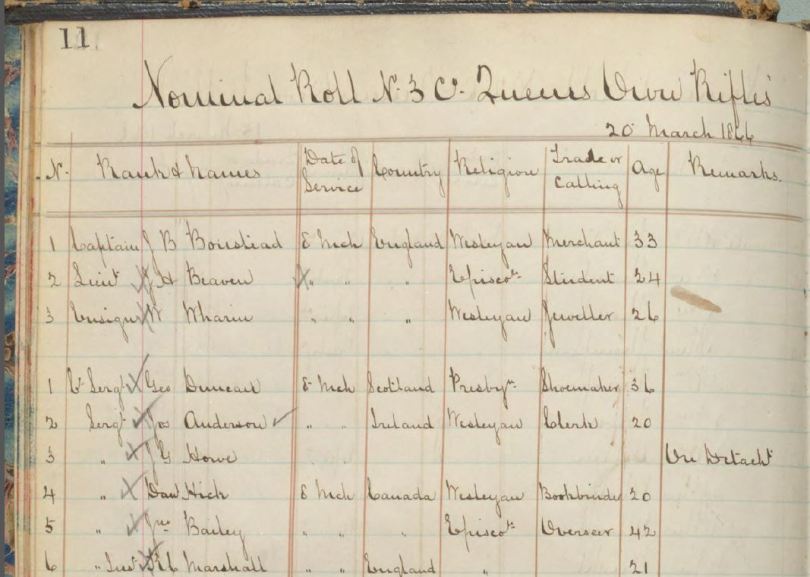 11
Nominal Roll No 3 Co. Queens Own Rifles
20 March 1866
No. Rank & Names Date of Service Country Religion Trade or Calling Age Remarks.
1 Captain J B Boustead 8 Mch England Wesleyan Merchant 33
2 Lieut J H Beaven " " " Episcotn Student 24
3 Ensign W Wharin " " " Wesleyan Jeweller 26
1 Cr Sergt Geo Duncan 8 Mch Scotland Presbyn Shoemaker 36
2 Sergt Jos Anderson " " Ireland Wesleyan Clerk 20
3 " J G Howe On Detacht
4 " Danl Hich 8 Mch Canada Wesleyan Bookbinder 20
5 " Jno Bailey " " " Episcotn Overseer 42
6 " Marshall " " England " 21